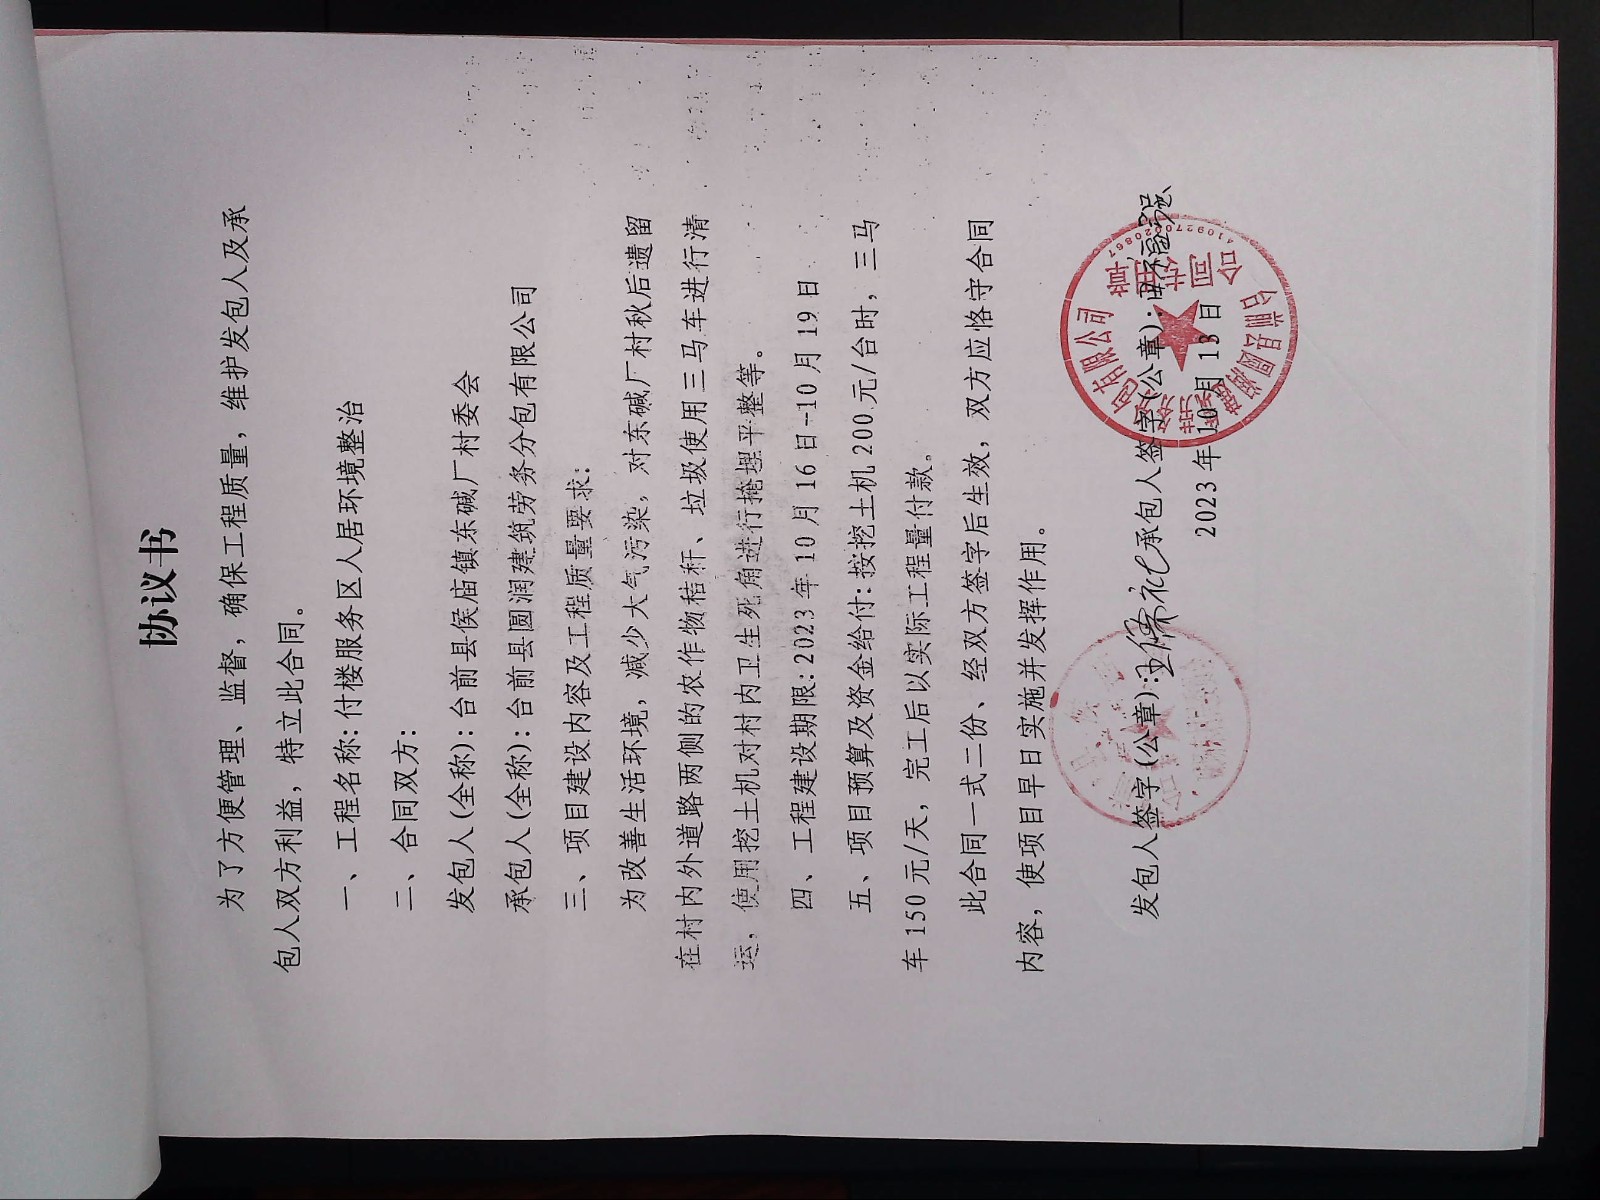 协议书
为了方便管理、监督，确保工程质量，维护发包人及承
包人双方利益，特立此合同。
一、工程名称：付楼服务区人居环境整治
二、合同双方：
发包人(全称)：台前县侯庙镇东碱厂村委会
承包人(全称)：台前县圆润建筑劳务分包有限公司
三、项目建设内容及工程质量要求：
为改善生活环境，减少大气污染，对东碱厂村秋后遗留
在村内外道路两侧的农作物秸秆、垃圾使用三马车进行清
运，使用挖土机对村内卫生死角进行掩埋平整等。
四、工程建设期限：2023年10月16日-10月19日
五、项目预算及资金给付：按挖土机200元/台时，三马
车150元/天，完工后以实际工程量付款。
此合同一式二份、经双方签字后生效，双方应恪守合同
内容，使项目早日实施并发挥作用。
发包人签字(公章)：王儒礼 承包人签字(公章)：
2023年10月13日
台前县圆润建筑劳务分包有限公司
合同专用章
4109270020867